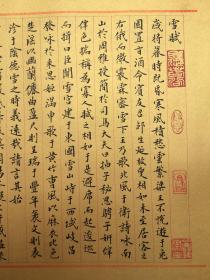 雪賦
歲將暮時既昏寒風積愁雲繁梁王不悅遊于兔
園置旨酒命賓友召鄒生延枚叟相如末至居客之
右俄而微霰零密雪下王乃歌北風于衛詩詠南
山於周雅授簡於司馬大夫曰抽子秘思騁子妍辭
侔色揣稱為寡人賦之相如于是避席而起逡巡
而揖曰臣聞雪宮建于東國雪山峙于西域岐昌
發詠於來思姬滿申歌于黃竹曹風以麻衣比色
楚謠以幽蘭儷曲盈尺則呈瑞于豐年袤丈則表
沴于陰德雪之時義遠矣哉請言其始